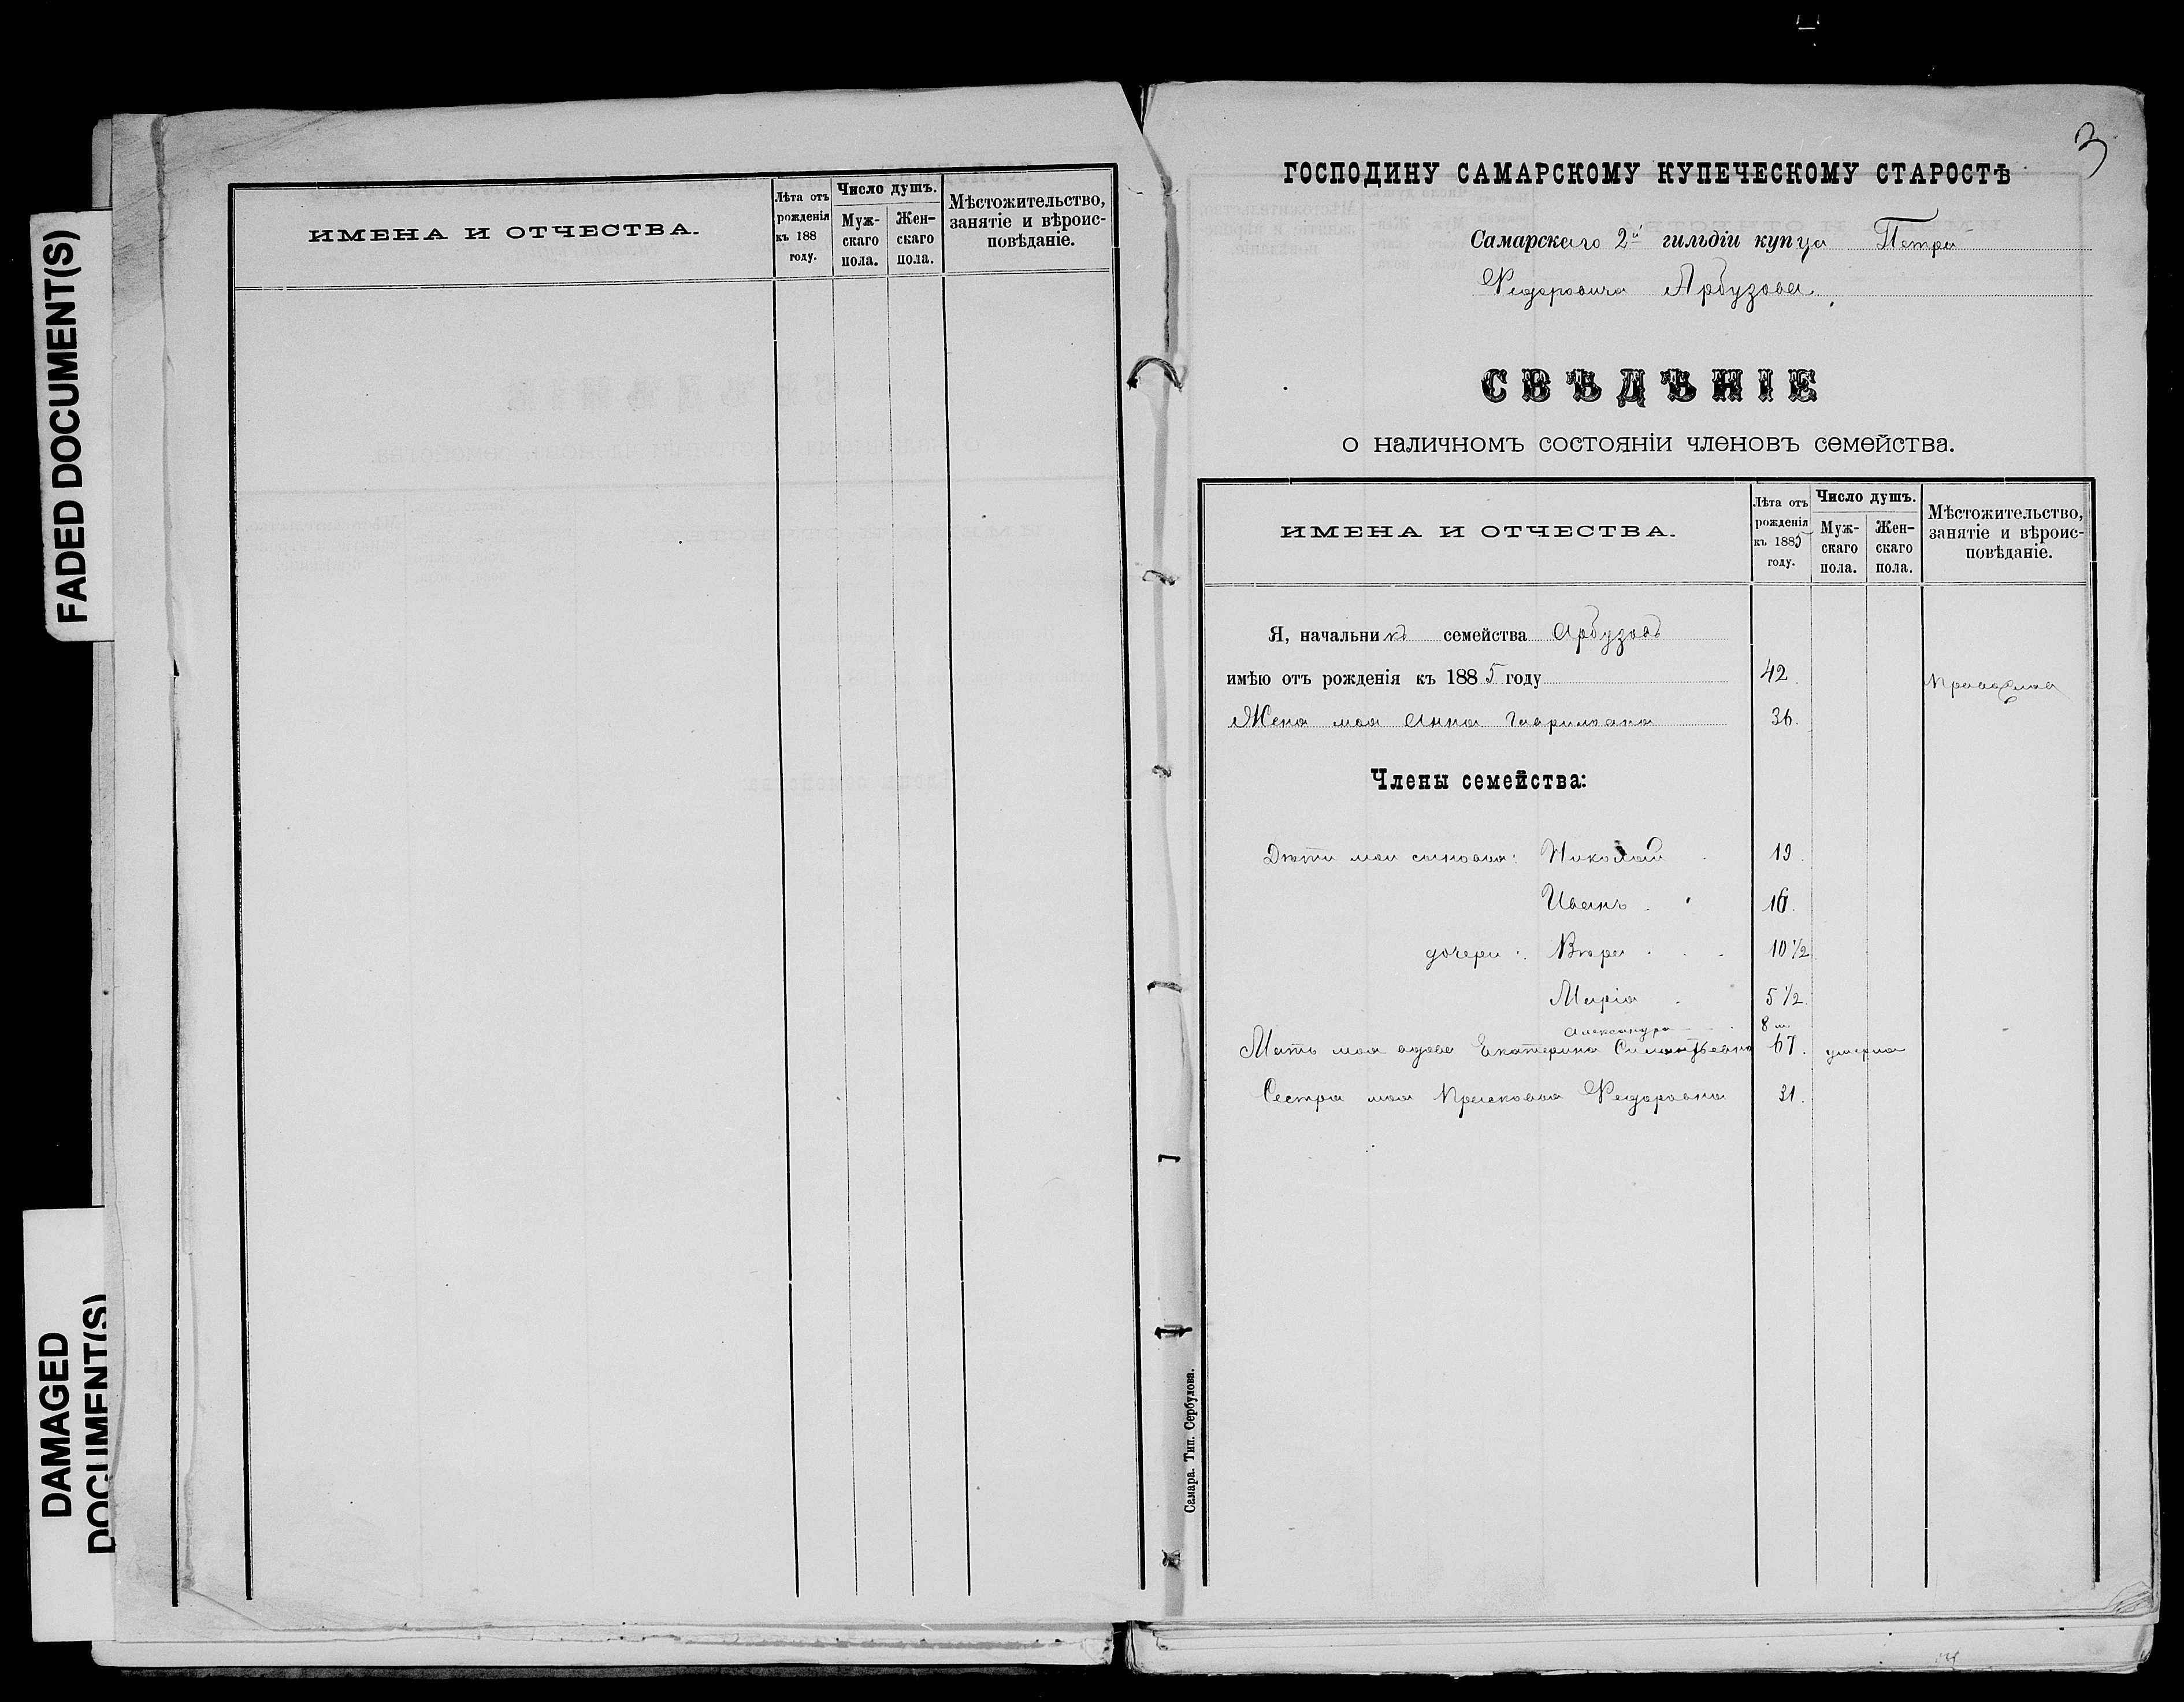 FADED DOCUMENT(S)
DAMAGED
DOCUMENT(S)
ИМЕНА И ОТЧЕСТВА.
Лѣта отъ
рожденія
къ 188
году.
Число душъ.
Муж-
скаго
пола.
Жен-
скаго
пола.
Мѣстожительство,
занятіе и вѣроис-
повѣданіе.
3
ГОСПОДИНУ САМАРСКОМУ КУПЕЧЕСКОМУ СТАРОСТѢ
Самарскаго 2й гильдіи купца Петра
Федоровича Арбузова.
СВѢДѢНІЕ
о наличномъ состояніи членовъ семейства.
ИМЕНА И ОТЧЕСТВА.
Лѣта отъ
рожденія
къ 1885
году.
Число душъ.
Муж-
скаго
пола.
Жен-
скаго
пола.
Мѣстожительство,
занятіе и вѣроис-
повѣданіе.
Я, начальникъ семейства Арбузовъ
имѣю отъ рожденія къ 1885 году 42.
Жена моя Анна Гавриловна 36.
Члены семейства:
Дѣти мои сыновья: Николай 19.
Иванъ 16.
дочери: Вѣра 10 1/2
Марія 5 1/2
Александра 8 м.
Мать моя вдова Екатерина 67. умерла
Сестра моя Прасковья Федоровна 31.
Самара. Тип. Сербулова.